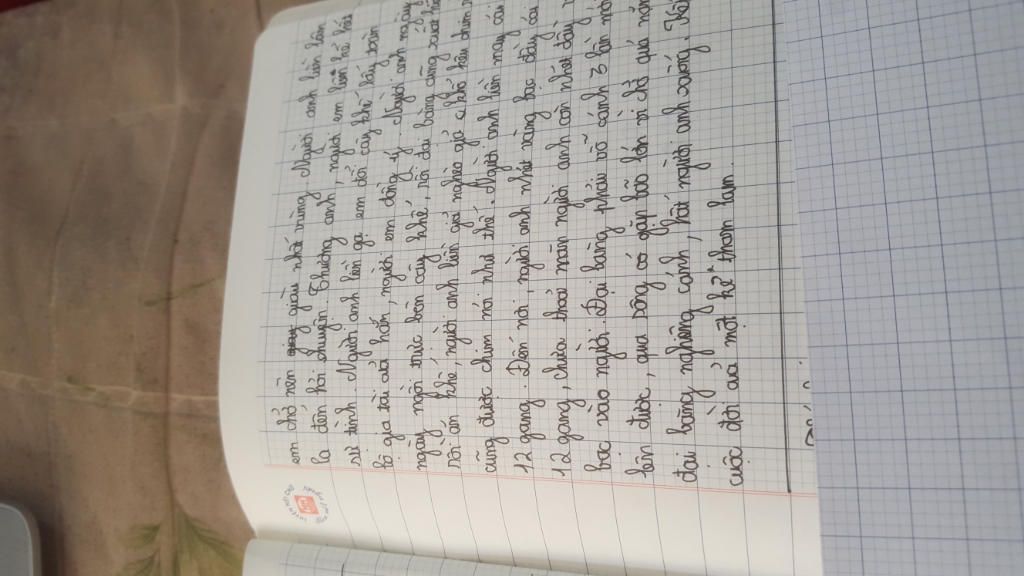 em trở nên giàu nhất vùng. Người anh liền lân
la đến hỏi chuyện. Thương anh, người em liền kể hết
sự tình. Người anh liền gạ em đổi cây khế lấy toàn
bộ gia tài của hắn, người em đồng ý. Người anh ngày
ngày ngồi trực bên cây khế, rồi đại bàng cũng xuất
rồi ăn khế, người anh liền giả nghèo giả khổ kêu chim
cũng được chim nói như thế. Người anh liền may cái
12 gang. Đến nơi người anh nhặt vàng bạc đầy cái
12 gang, chưa thoả mãn người anh còn nhét đầy
bạc vào người. Đại bàng phải vỗ cánh 3 lần mới
lên được, qua sông có gặp bão lớn rồi chở quá nặng
đại bàng nghiêng cánh, hất người anh xuống. Kết
cuộc đời của một kẻ tham lam.